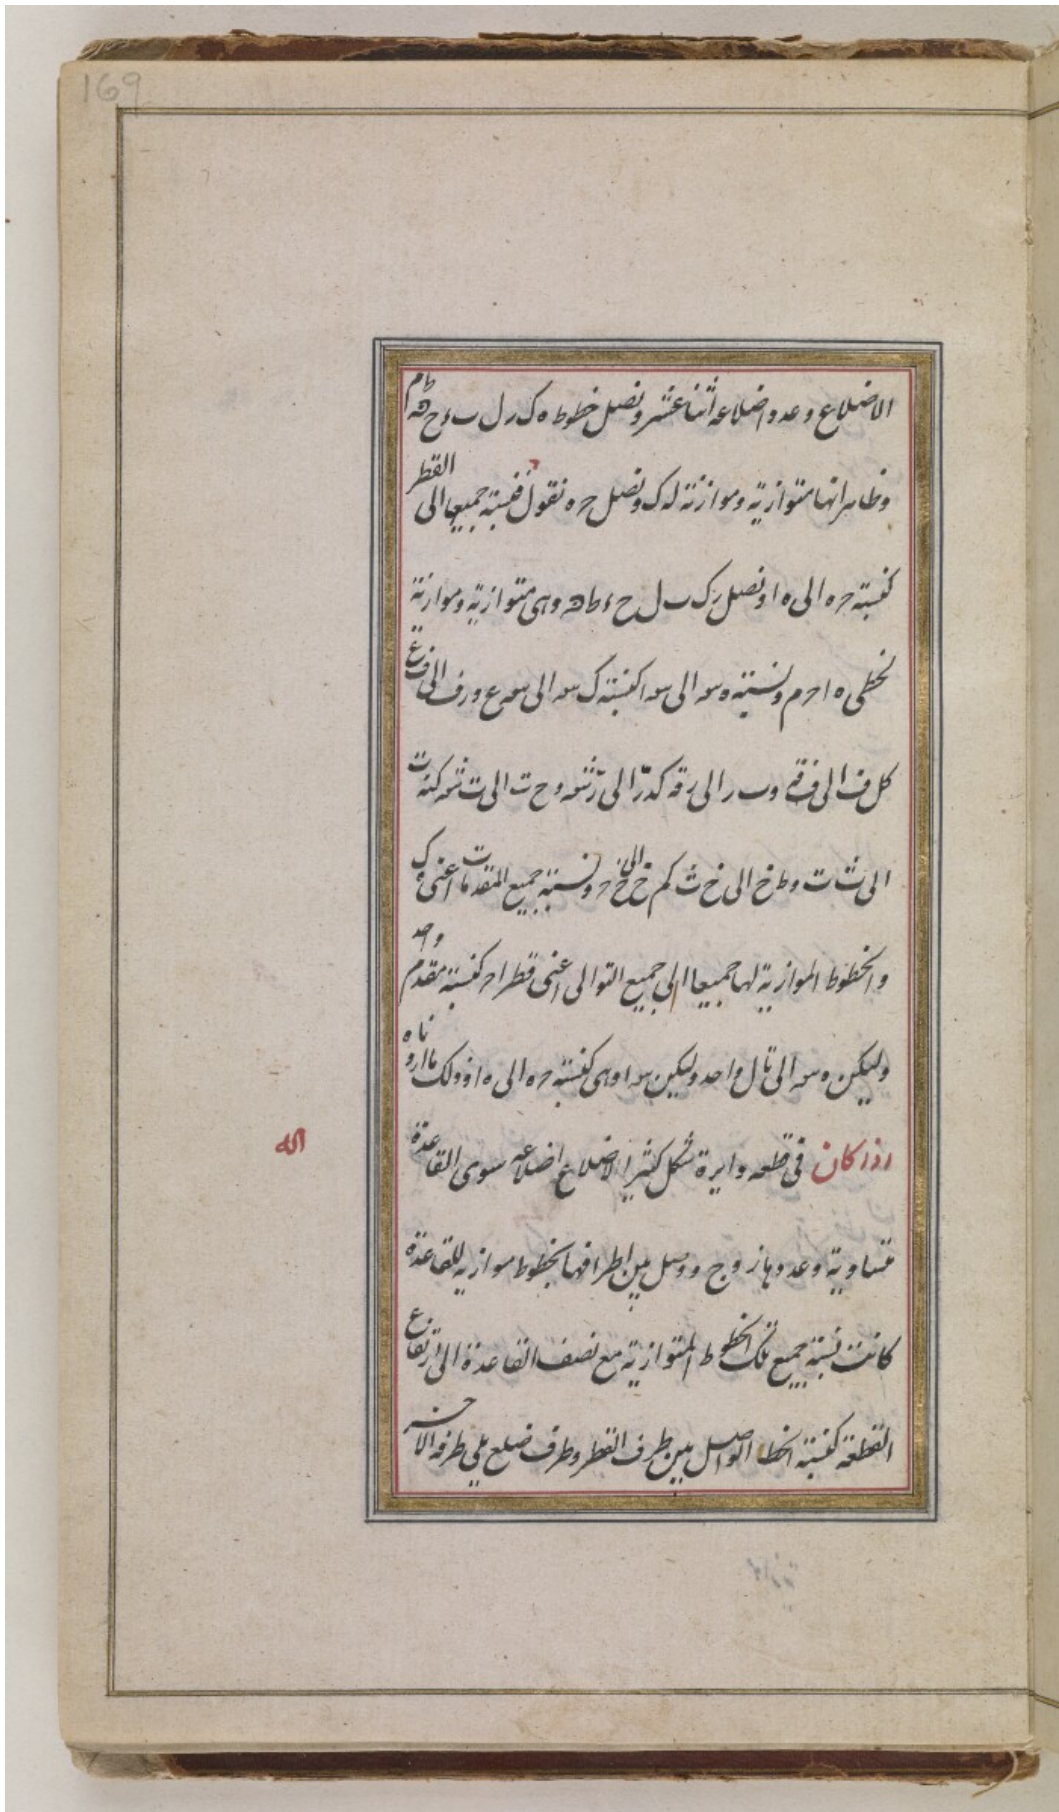 169
الاضلاع وعدد اضلاعه اثنا عشر ونصل خطوط ه ك ر ل ب ء ح ڡه ط م
وظاهر انها متوازية وموازنة له ك ونصل ح ه نقول فنسبة جميعها الى القطر
كنسبة ح ه الى ه ا ونصل ر ك ب ل ح ء ط ڡه وهى متوازية وموازنة
لخطى ه ا ح م ونسبة ه سه الى سه ا كنسبة ك سه الى سه ع و ر ف الى ف ع
كل ف الى ف ق و ب ر الى ر ق كد ر الى ر ش و ح ت الى ت ش
الى ث ت و ط خ الى خ ث كم خ الى خ ح ونسبة جميع المقدمات اعنى ك
والخطوط الموازية لها جميعا الى جميع التوالى اعنى قطر ا ح كنسبة مقدم واحد
وليكن ه سه الى تال واحد وليكن سه ا وهى كنسبة ح ه الى ه ا وذلك ما اردناه
اذا كان فى قطعه دايرة شكل كثير الاضلاع اضلاعه سوى القاعدة
متساوية وعددها زوج ووصل بين اطرافها بخطوط موازية للقاعدة
كانت نسبة جميع تلك الخطوط المتوازية مع نصف القاعدة الى ارتفاع
القطعة كنسبة الخط الواصل بين طرف القطر وطرف ضلع يلى طرفه الاخر